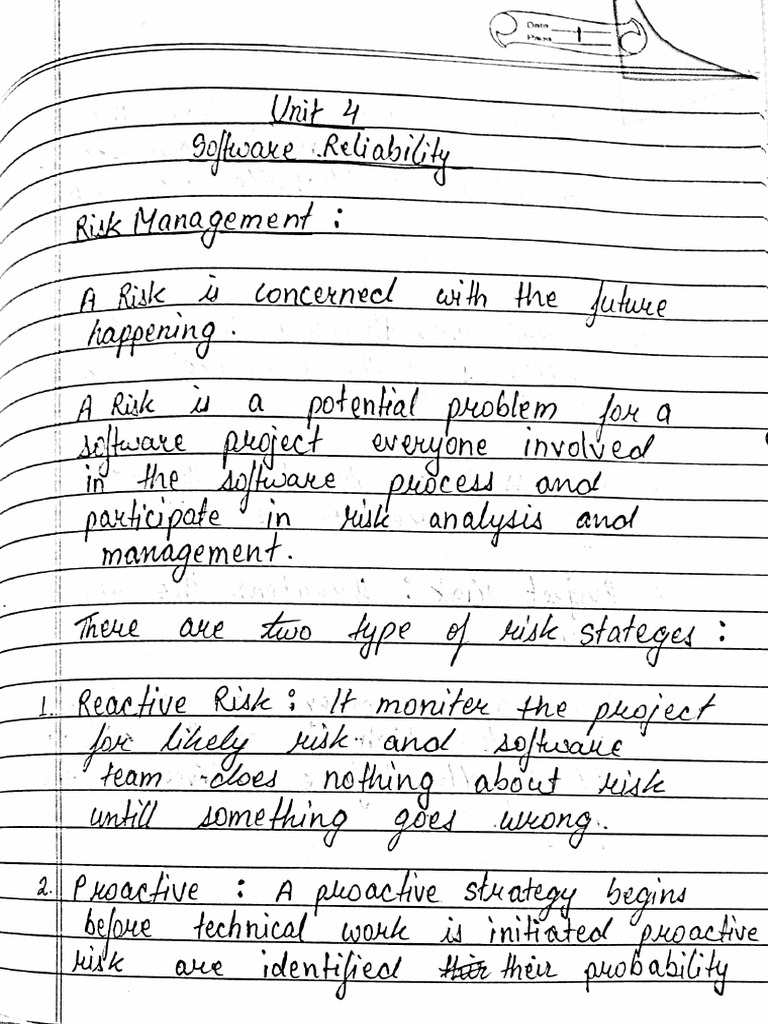 Date
Page
Unit 4
Software Reliability
Risk Management :
A Risk is concerned with the future
happening.
A Risk is a potential problem for a
software project everyone involved
in the software process and
participate in risk analysis and
management.
There are two type of risk stateges :
1. Reactive Risk : It moniter the project
for likely risk and software
team does nothing about risk
untill something goes wrong.
2. Proactive : A proactive strategy begins
before technical work is initiated proactive
risk are identified their their probability